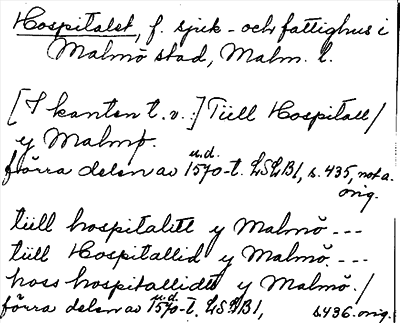 Hospitalet, f. sjuk- och fattighus i
Malmö stad, Malm. l.
[I kanten t.v.:] Tüll Hospitall/
y Malmø.
förra delen av u.d. 1570-t. LSLB1, s. 435, not a.
orig.
tüll hospitalett y Malmö ---
tüll Hospitallid y Malmö ---
hoss hospitallidtt y Malmö./
förra delen av u.d. 1570-t. LSLB1, s436. orig.